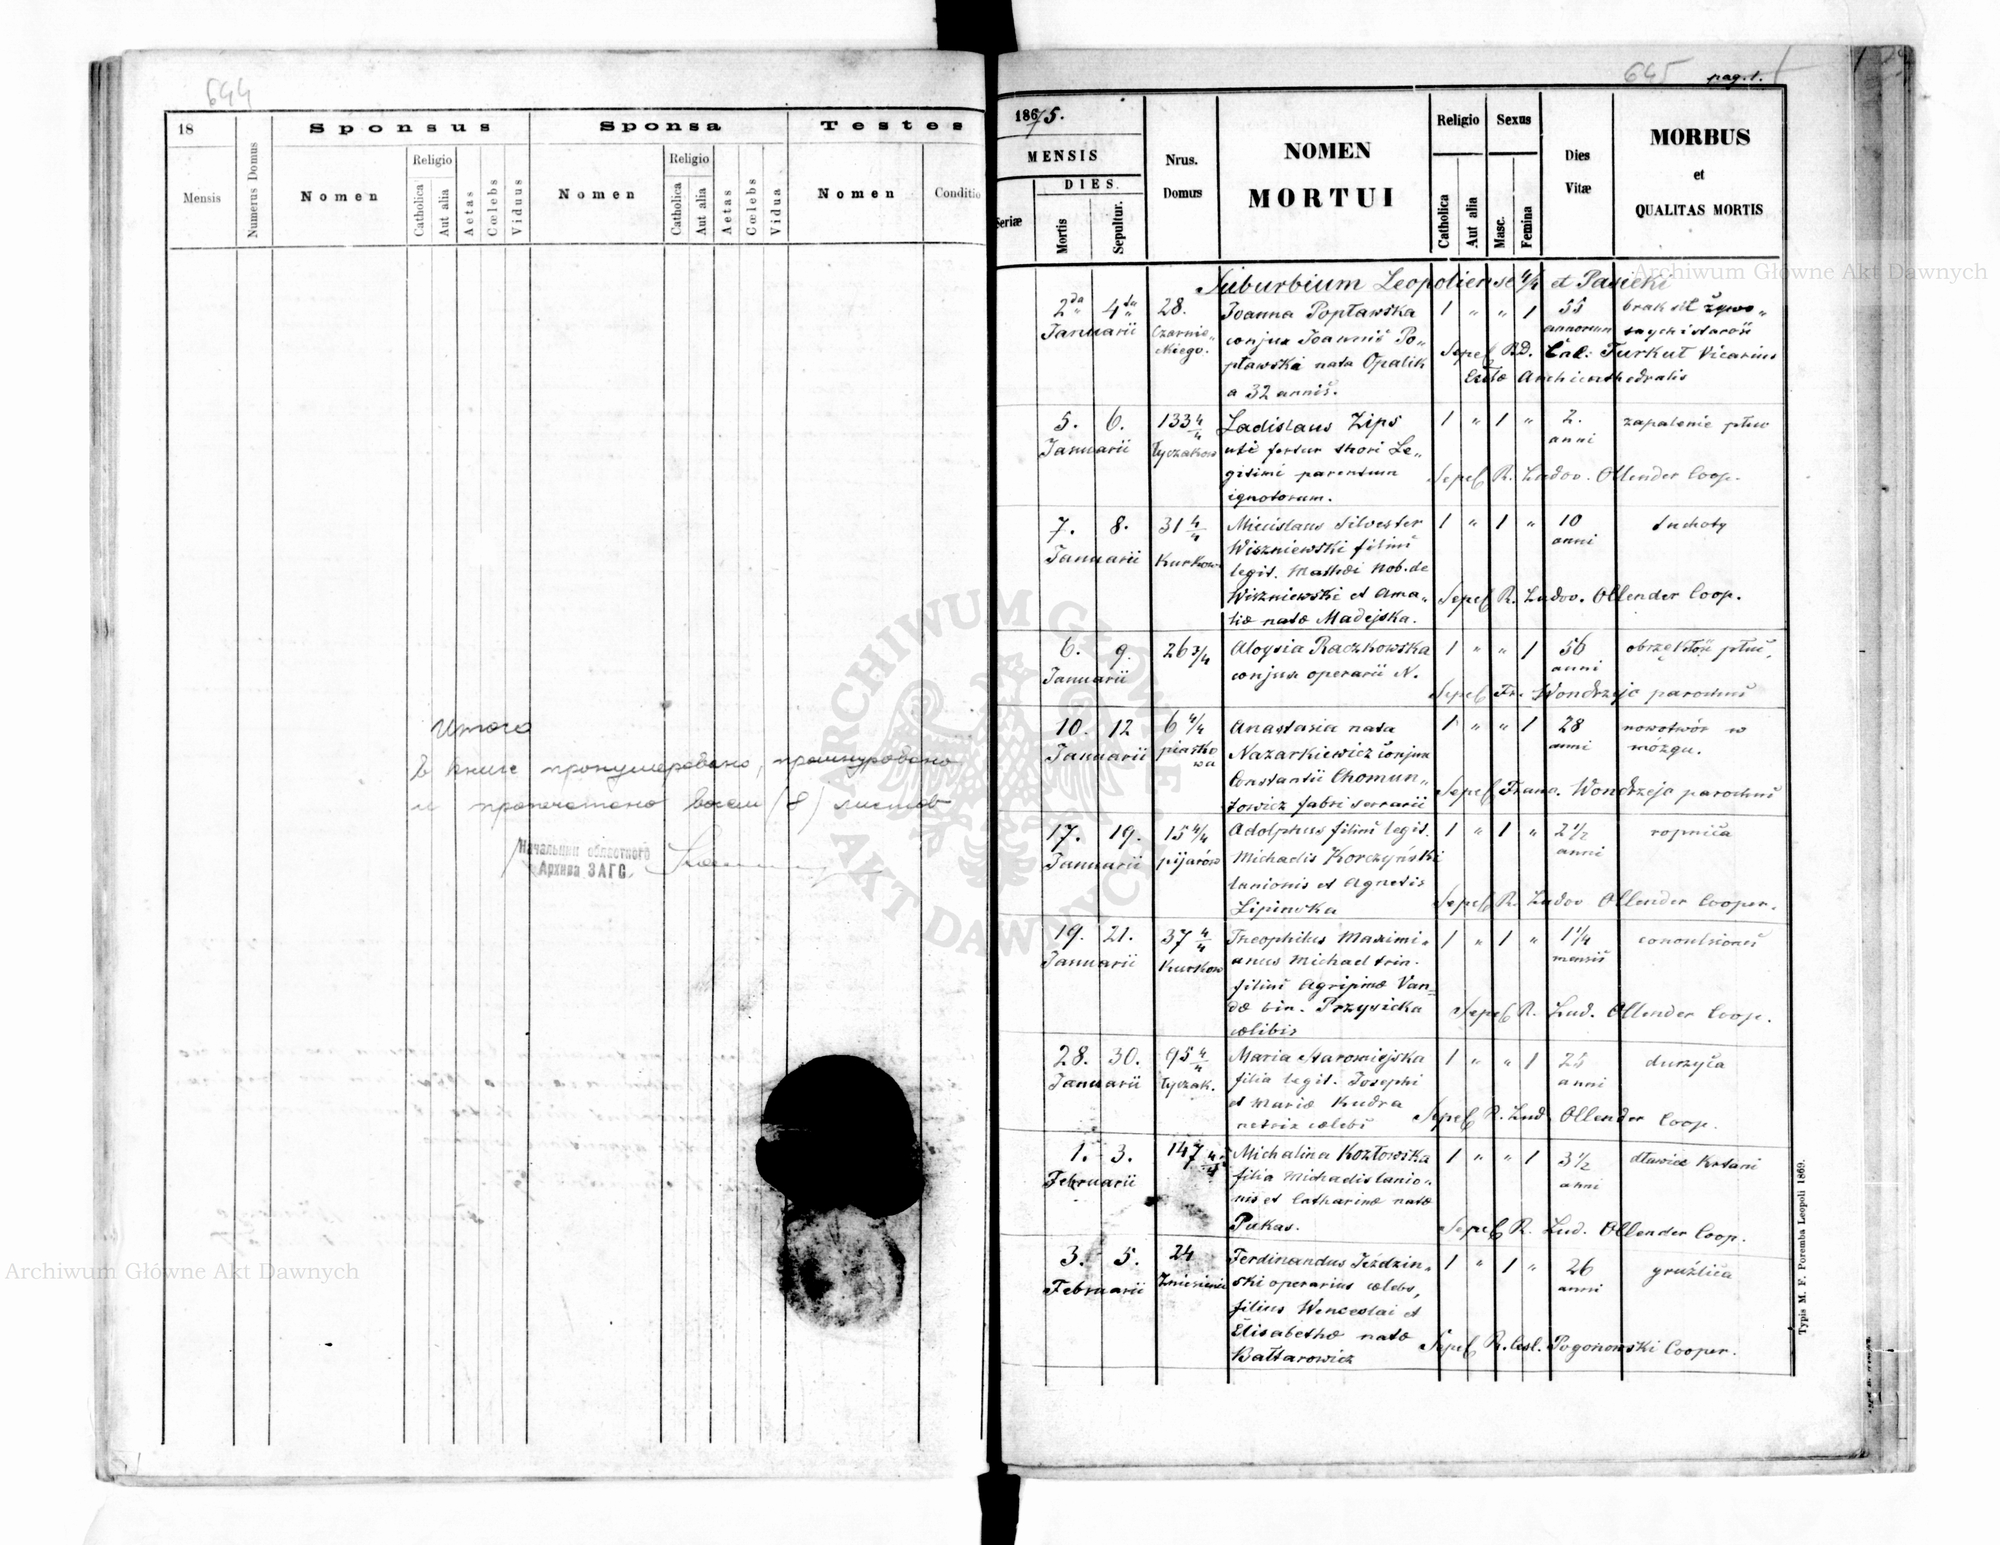 644
18
Mensis
Numerus Domus
Sponsus
Nomen
Religio
Catholica
Aut alia
Aetas
Cœlebs
Viduus
Sponsa
Nomen
Religio
Catholica
Aut alia
Aetas
Cœlebs
Vidua
Testes
Nomen
Conditio
Итого
В книге пронумеровано, прошнуровано
и пропечатано восем (8) листов
Начальник областного
Архива ЗАГС
645
pag. 1.
1875.
MENSIS
DIES.
Seriæ
Mortis
Sepultur.
Nrus.
Domus
NOMEN
MORTUI
Religio
Catholica
Aut alia
Sexus
Masc.
Femina
Dies
Vitæ
MORBUS
et
QUALITAS MORTIS
Suburbium Leopoliense 4/4 et Pasieki
2da 4ta 28. Joanna Popławska 1 " " 1 55 brak sił żywo„
Januarii Czarnie„ conjux Joannis Po„ annorum tnych i starość
ckiego. pławski nata Opalik Sepel. RD. Turkut Vicarius
a 32 annis. Archicathedralis
5. 6. 133 4/4 Ladislaus Zips 1 " 1 " 2. zapalenie płuc
Januarii Łyczakow uti fertur thori Le„ anni
gitimi parentum Sepel. R. Ludov. Ollender Coop.
ignotorum.
7. 8. 31 4/4 Miecislaus Silvester 1 " 1 " 10 Suchoty
Januarii Kurkow Wiszniewski filius anni
legit. Mathæi Nob. de
Wiszniewski et Ama„ Sepel. R. Ludov. Ollender Coop.
liæ natæ Madejska.
6. 9. 26 3/4 Aloysia Raczkowska 1 " " 1 56 obrzękłość płuc.
Januarii conjux operarii N. anni
Sepel. Fr. Wondrzejc parochus
10. 12 6 4/4 Anastasia nata 1 " " 1 28 nowotwór w
Januarii piasko Nazarkiewicz conjux anni mózgu.
wa Constantii Chomun„ Sepel. Franc. Wondrzejc parochus
towicz fabri serrarii
17. 19. 15 4/4 Adolphus filius legit. 1 " 1 " 2 1/2 ropnica
Januarii pijarów Michaelis Korczyński anni
lanionis et Agnetis Sepel. R. Ludov Ollender Cooper.
Lipinska
19. 21. 37 4/4 Theophilus Maximi„ 1 " 1 " 1 1/4 convulsiones
Januarii Kurkow anus Michael trin. mensis
filius Agripinæ Van=
dæ bin. Przysicka Sepel. R. Lud. Ollender Coop.
cœlibis
28. 30. 95 4/4 Maria Staromiejska 1 " " 1 anni durzyca
Januarii Łyczak. filia legit. Josephi
et Mariæ Kudra Sepel. R. Lud. Ollender Coop.
cœlebs
1. 3. 147 4/4 Michalina Kozłowska 1 " " 1 3 1/2 dławiec krtani
Februarii filia Michaelis lanio„ anni
nis et Catharinæ natæ
Pukas. Sepel. R. Lud. Ollender Coop.
3. 5. 24 Ferdinandus Jeździn„ 1 " 1 " 26 gruźlica
Februarii Zniesienie ski operarius cœlebs, anni
filius Wenceslai et
Elisabethæ natæ Sepel. R. Cesl. Pogonowski Cooper.
Bałtarowicz
Typis M. F. Poremba Leopoli 1869.
Archiwum Główne Akt Dawnych
Archiwum Główne Akt Dawnych
ARCHIWUM GŁÓWNE AKT DAWNYCH